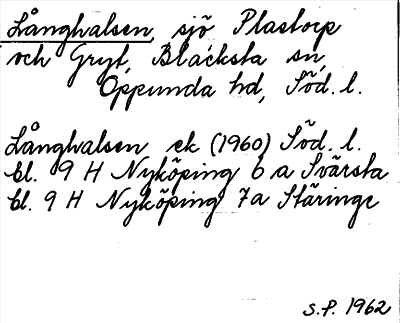 Långhalsen, sjö Plastorp
och Gryt, Blacksta sn,
Oppunda hd, Söd. l.
Långhalsen ek (1960) Söd. l.
bl. 9 H Nyköping 6 a Svärsta
bl. 9 H Nyköping 7a Stäringe
S.P. 1962